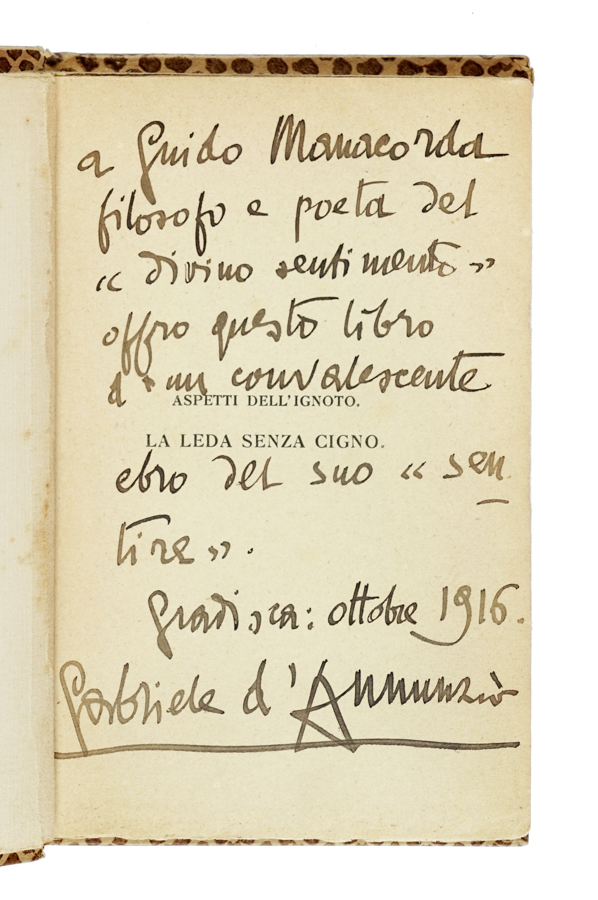 a Guido Manacorda
filosofo e poeta del
« divino sentimento »
offro questo libro
d'un convalescente
ASPETTI DELL'IGNOTO.
LA LEDA SENZA CIGNO.
ebro del suo « sen
tire ».
Gradisca: ottobre 1916.
Gabriele d'Annunzio